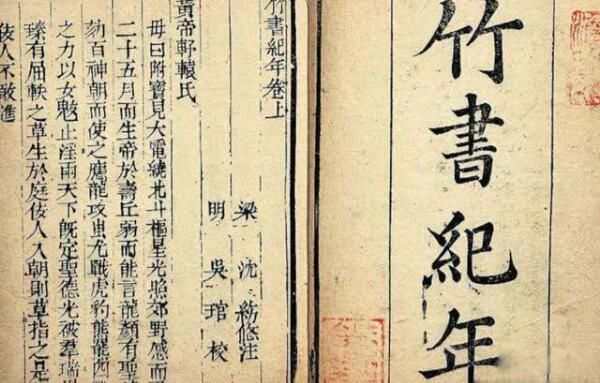 竹書紀年
竹書紀年卷上
梁 沈約附注
明 吳琯校
黃帝軒轅氏
母曰附寶見大電繞北斗樞星光照郊野感而
二十五月而生帝於壽丘弱而能言龍顏有聖
劾百神朝而使之應龍攻蚩尤戰虎豹熊羆四
之力以女魃止淫雨天下既定聖德光被羣瑞
臻有屈軼之草生於庭佞人入朝則草指之是
佞人不敢進